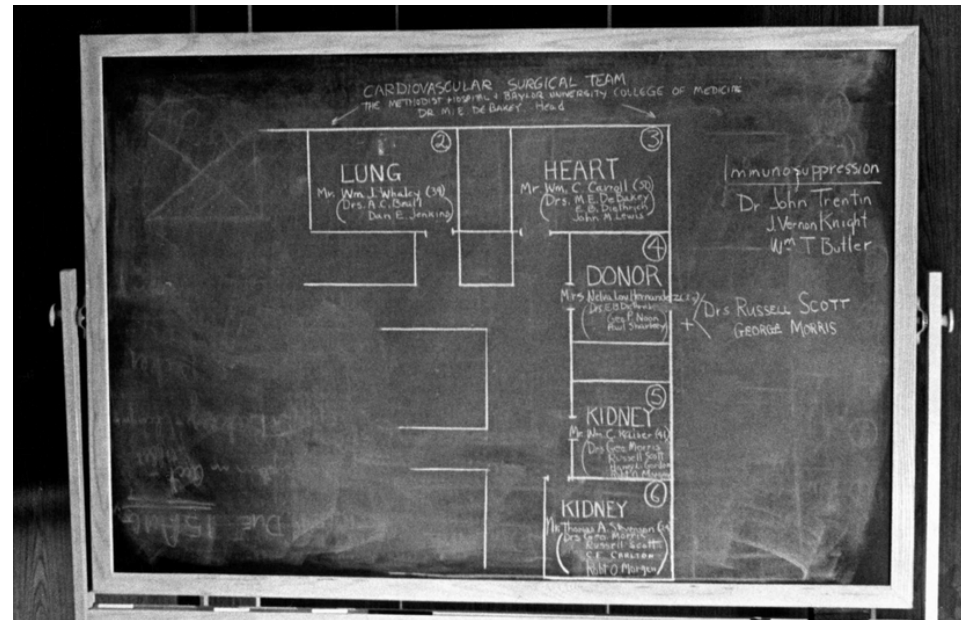 CARDIOVASCULAR SURGICAL TEAM
THE METHODIST HOSPITAL & BAYLOR UNIVERSITY COLLEGE OF MEDICINE
DR M.E. DE BAKEY Head
②
LUNG
Mr. Wm. J. Whaley (39)
(Drs. A.C. Beall
Dan E. Jenkins)
③
HEART
Mr Wm. C. Carroll (50)
(Drs. M.E. DeBakey
E.B. Diethrich
John M Lewis)
Immunosuppression
Dr John Trentin
J. Vernon Knight
Wm T Butler
④
DONOR
Mrs Nelva Lou Hernandez
(Drs E B Diethrich
Geo P. Noon
+ (Drs RUSSELL SCOTT
GEORGE MORRIS
⑤
KIDNEY
Mr. Wm. C. (41)
(Drs Geo Morris
Russell Scott
Gordon
Robt O Morgen)
⑥
KIDNEY
Mr Thomas A. Stevenson
(Drs Geo. Morris
Russell Scott
C E CARLTON
Robt O Morgen)
DUE 15 AUG